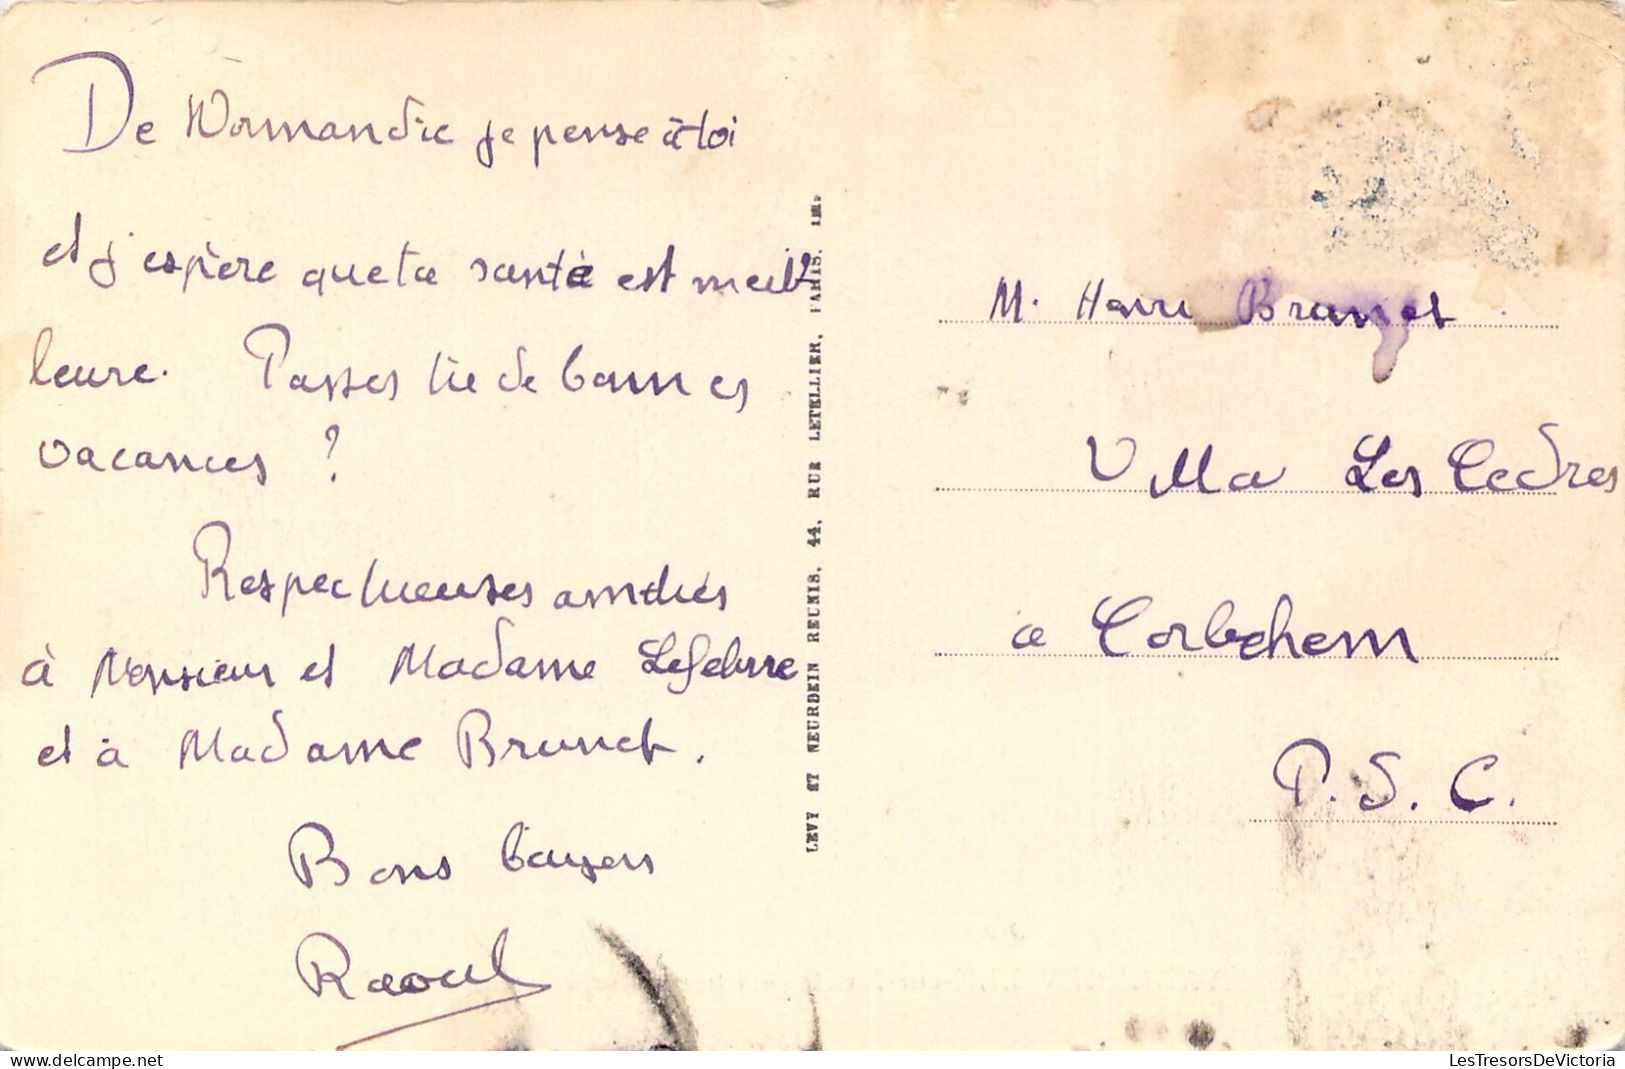 De Normandie je pense à toi
et j'espère que ta santé est meil
leure. Passes tu de bonnes
vacances ?
Respectueuses amitiés
à Monsieur et Madame Lefebvre
et à Madame Brunet.
Bons baisers
Raoul
LEVY ET NEURDEIN REUNIS, 44, RUE LETELLIER, PARIS. IMP
M. Henri Brunet
Villa Les Cèdres
à Corbehem
P.S.C.
LesTresorsDeVictoria
www.delcampe.net